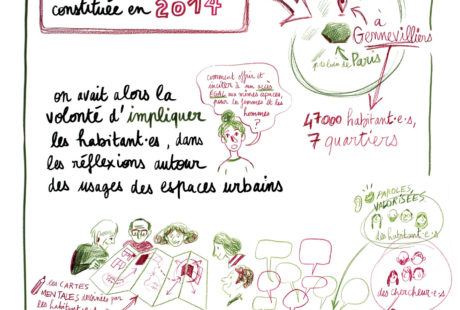 constituée en 2014
à
Gennevilliers
Paris
47000 habitant·e·s,
7 quartiers
comment offrir et
inciter à un accès
ÉGAL aux mêmes espaces,
pour les femmes et les
hommes ?
on avait alors la
volonté d'impliquer
les habitant·e·s, dans
les réflexions autour
des usages des espaces urbains
PAROLES
VALORISÉES
les habitant·e·s
des chercheur·e·s
les CARTES
MENTALES
par
les habitant·e·s